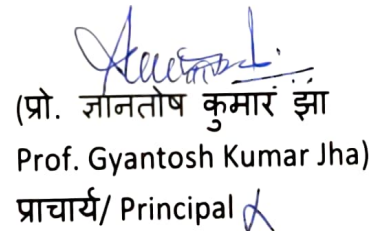 (प्रो. ज्ञानतोष कुमारं झा
Prof. Gyantosh Kumar Jha)
प्राचार्य/ Principal